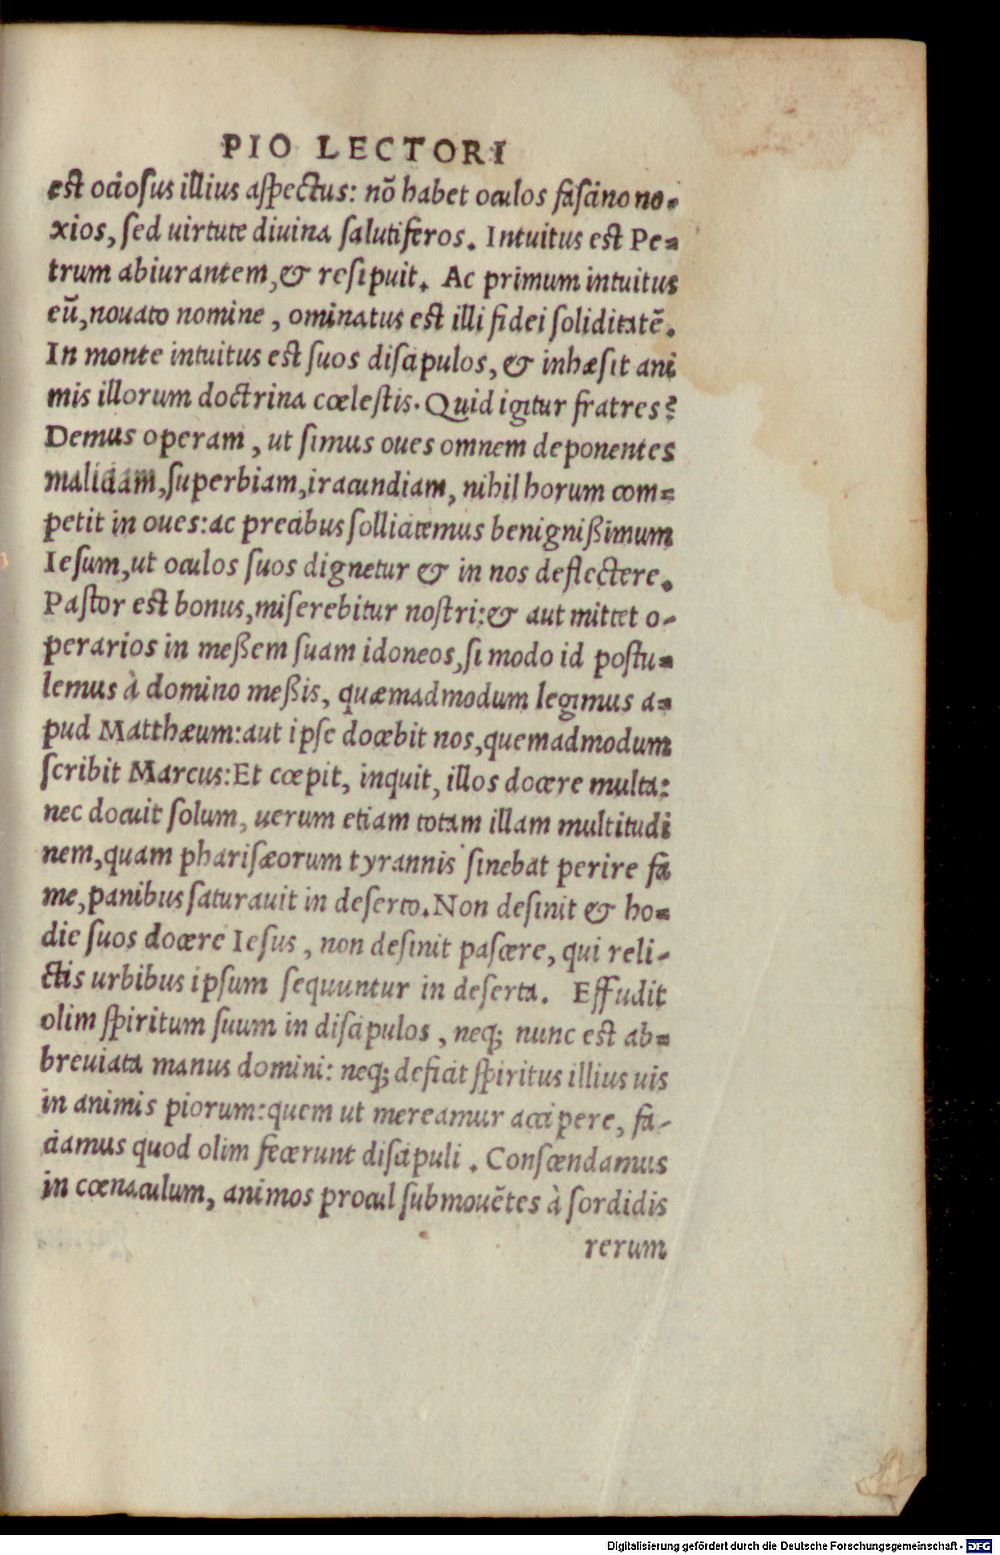 PIO LECTORI
est ociosus illius aspectus: nõ habet oculos fascino no-
xios, sed uirtute diuina salutiferos. Intuitus est Pe-
trum abiurantem, & resipuit. Ac primum intuitus
eũ, nouato nomine, ominatus est illi fidei soliditatẽ.
In monte intuitus est suos discipulos, & inhæsit ani
mis illorum doctrina cœlestis. Quid igitur fratres?
Demus operam, ut simus oues omnem deponentes
maliciam, superbiam, iracundiam, nihil horum com-
petit in oues: ac precibus sollicitemus benignißimum
Iesum, ut oculos suos dignetur & in nos deflectere.
Pastor est bonus, miserebitur nostri: & aut mittet o-
perarios in meßem suam idoneos, si modo id postu-
lemus à domino meßis, quæmadmodum legimus a-
pud Matthæum: aut ipse docebit nos, quemadmodum
scribit Marcus: Et cœpit, inquit, illos docere multa:
nec docuit solum, uerum etiam totam illam multitudi
nem, quam pharisæorum tyrannis sinebat perire fa
me, panibus saturauit in deserto. Non desinit & ho-
die suos docere Iesus, non desinit pascere, qui reli-
ctis urbibus ipsum sequuntur in deserta. Effudit
olim spiritum suum in discipulos, neq; nunc est ab-
breuiata manus domini: neq; deficit spiritus illius uis
in animis piorum: quem ut mereamur accipere, fa-
ciamus quod olim fecerunt discipuli. Conscendamus
in cœnaculum, animos procul submouẽtes à sordidis
rerum
Digitalisierung gefördert durch die Deutsche Forschungsgemeinschaft - DFG